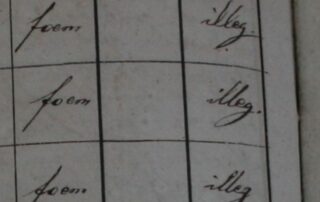 foem illeg.
foem illeg.
foem illeg